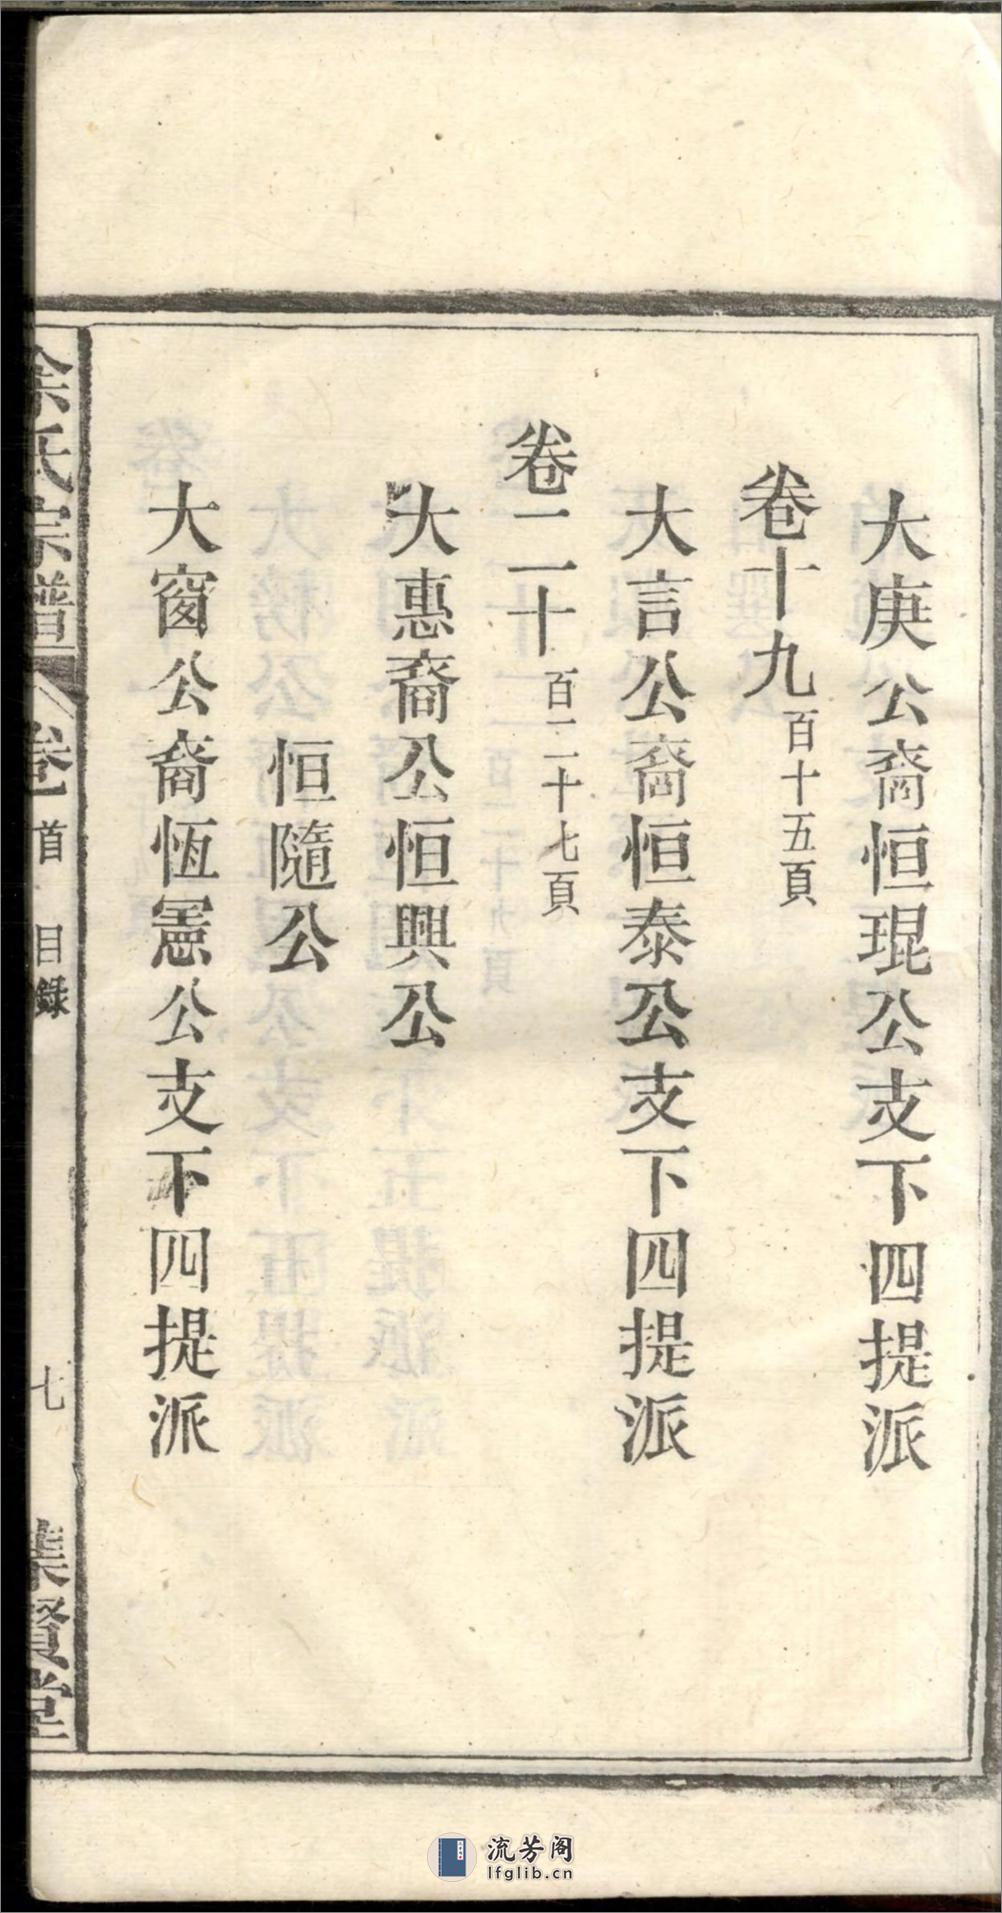 大庚公裔恒琨公支下四提派
卷十九百十五頁
大言公裔恒泰公支下四提派
卷二十百二十七頁
大惠裔公恒興公
恒隨公
大窗公裔恆憲公支下四提派
徐氏宗譜
卷首
目錄
七
集賢堂
流芳阁
lfglib.cn